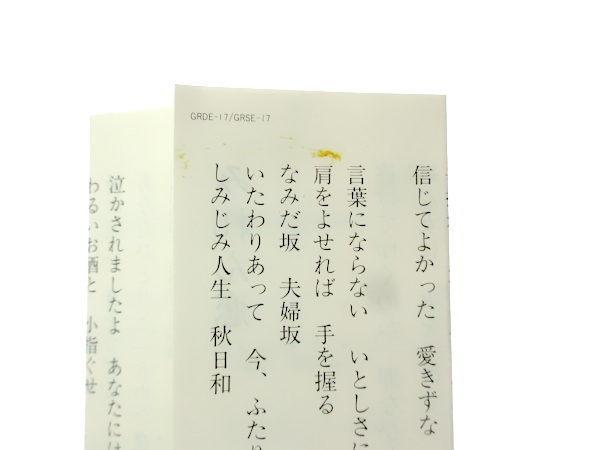 GRDE-17/GRSE-17
信じてよかった　愛きずな
言葉にならない　いとしさに
肩をよせれば　手を握る
なみだ坂　夫婦坂
いたわりあって　今、ふたり
しみじみ人生　秋日和
泣かされましたよ　あなたには
わるいお酒と　小指ぐせ